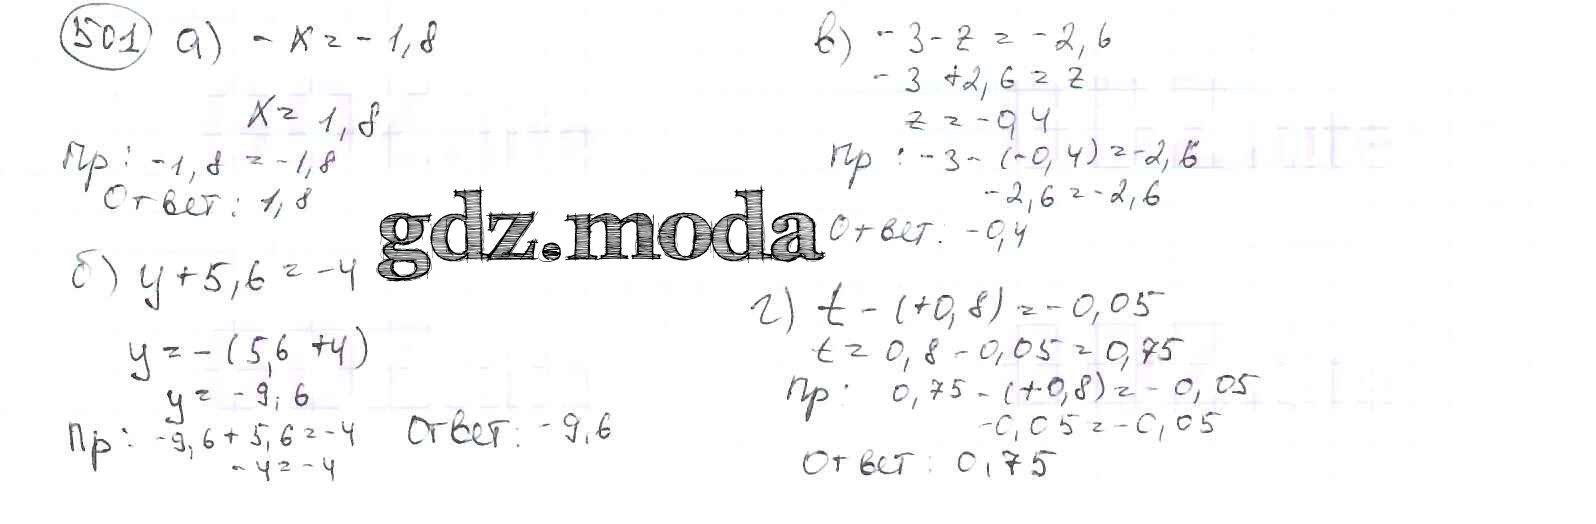 501 а) - x = - 1,8
x = 1,8
Пр: -1,8 = -1,8
Ответ: 1,8
б) y + 5,6 = -4
y = - (5,6 + 4)
y = -9,6
Пр: -9,6 + 5,6 = -4
-4 = -4
Ответ: -9,6
gdz.moda
в) - 3 - z = -2,6
- 3 + 2,6 = z
z = -0,4
Пр: -3 - (-0,4) = -2,6
-2,6 = -2,6
Ответ: -0,4
г) t - (+0,8) = -0,05
t = 0,8 - 0,05 = 0,75
Пр: 0,75 - (+0,8) = -0,05
-0,05 = -0,05
Ответ: 0,75